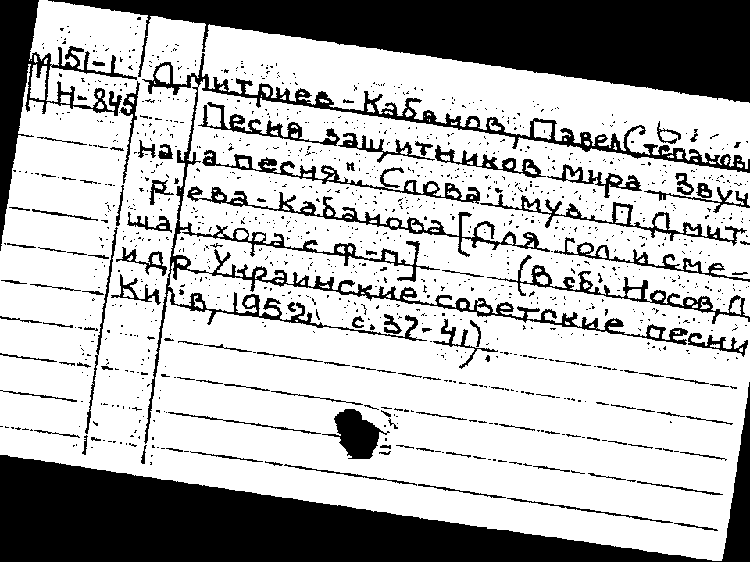 М 151-1
Н-845
Дмитриев-Кабанов, Павел Степанови
Песня защитников мира „Звуч
наша песня". Слова і муз. П. Дмит-
риева-Кабанова [Для гол. и сме-
шан. хора с ф-п.] (В сб.: Носов, Л.
и др. Украинские советские песни
Київ, 1952, с. 37-41).